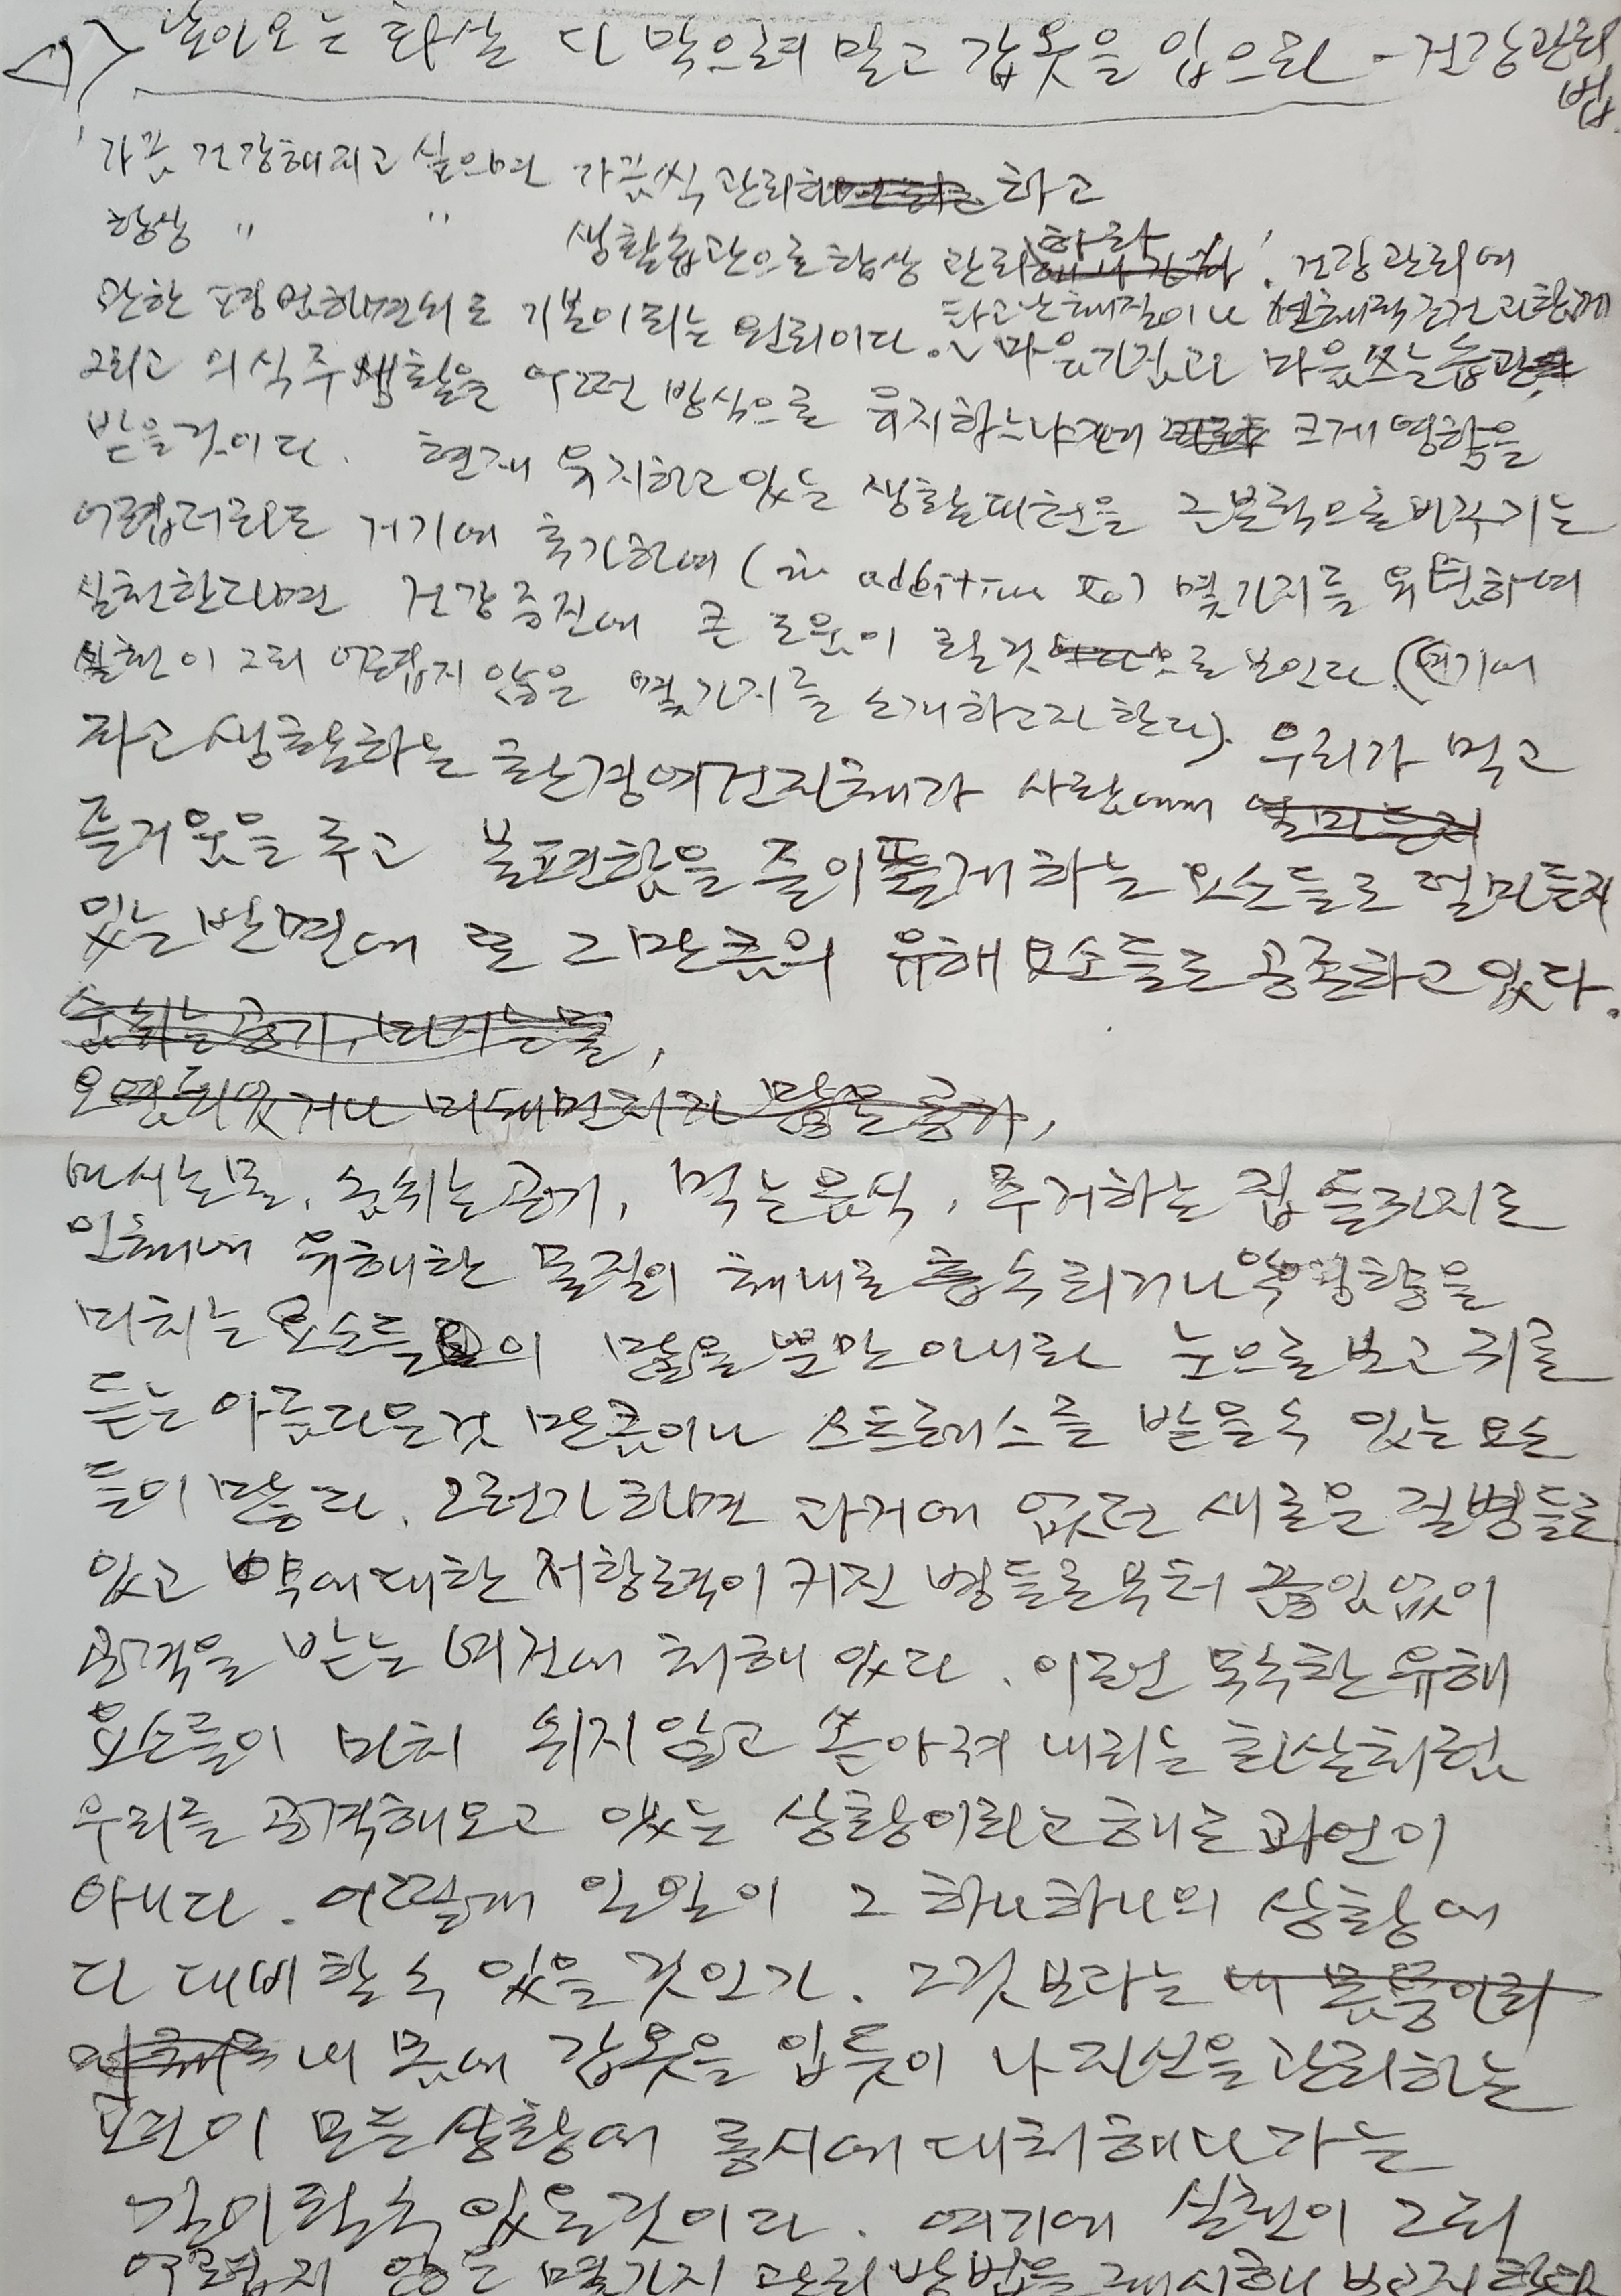 날아오는 화살 다 막으려 말고 갑옷을 입으라 - 건강관리
법.
'가끔 건강해지고 싶으면 가끔씩 관리 하고
항상 " " 생활습관으로 항상 관리하라'. 건강관리에
관한 기본이 되는 원리이다. 타고난 체질이나 조건과 함께
그리고 의식주 생활을 어떤 방식으로 유지하느냐에 크게 영향을 마음가짐과 마음쓰는 습관
받을 것이다. 현재 유지하고 있는 생활패턴을 근본적으로 바꾸기는
어렵더라도 거기에 추가하여 (in addition to) 몇가지를 하여
실천한다면 건강증진에 큰 도움이 될것으로 보인다. (여기에
실천이 그리 어렵지 않은 몇가지를 소개하고자 한다). 우리가 먹고
자고 생활하는 환경여건 자체가 사람에게
즐거움을 주고 불편함을 줄어들게 하는 요소들도 얼마든지
있는 반면에 또 그만큼의 유해 요소들도 공존하고 있다.
숨쉬는 공기, 마시는 물,
오염되있거나 미세먼지가 많은 공기,
마시는 물, 숨쉬는 공기, 먹는 음식, 주거하는 집 들까지도
인체에 유해한 물질이 체내로 흡수되거나 악영향을
미치는 요소들이 많을 뿐만 아니라 눈으로 보고 귀로
듣는 아름다운것 만큼이나 스트레스를 받을수 있는 요소
들이 많다. 그런가 하면 과거에 없던 새로운 질병들도
있고 약에 대한 저항력이 커진 병들로부터 끊임없이
공격을 받는 여건에 처해 있다. 이런 무수한 유해
요소들이 마치 쉬지않고 쏟아져 내리는 화살처럼
우리를 공격해오고 있는 상황이라고 해도 과언이
아니다. 어떻게 일일이 그 하나하나의 상황에
다 대비할 수 있을 것인가. 그것보다는
내 몸에 갑옷을 입듯이 나 자신을 관리하는
요건이 모든 상황에 동시에 대처해 나가는
길이 될수 있을것이다. 여기에 실천이 그리
어렵지 않은 몇가지 관리방법을 제시해 보고자 한다